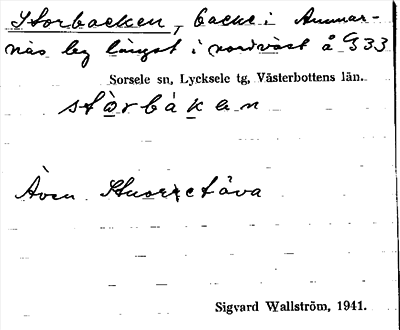 Storbacken, backe i Ammar-
näs by längst i nordväst å G 33
Sorsele sn, Lycksele tg, Västerbottens län.
stòrbákan
Även Stuoretåva
Sigvard Wallström, 1941.